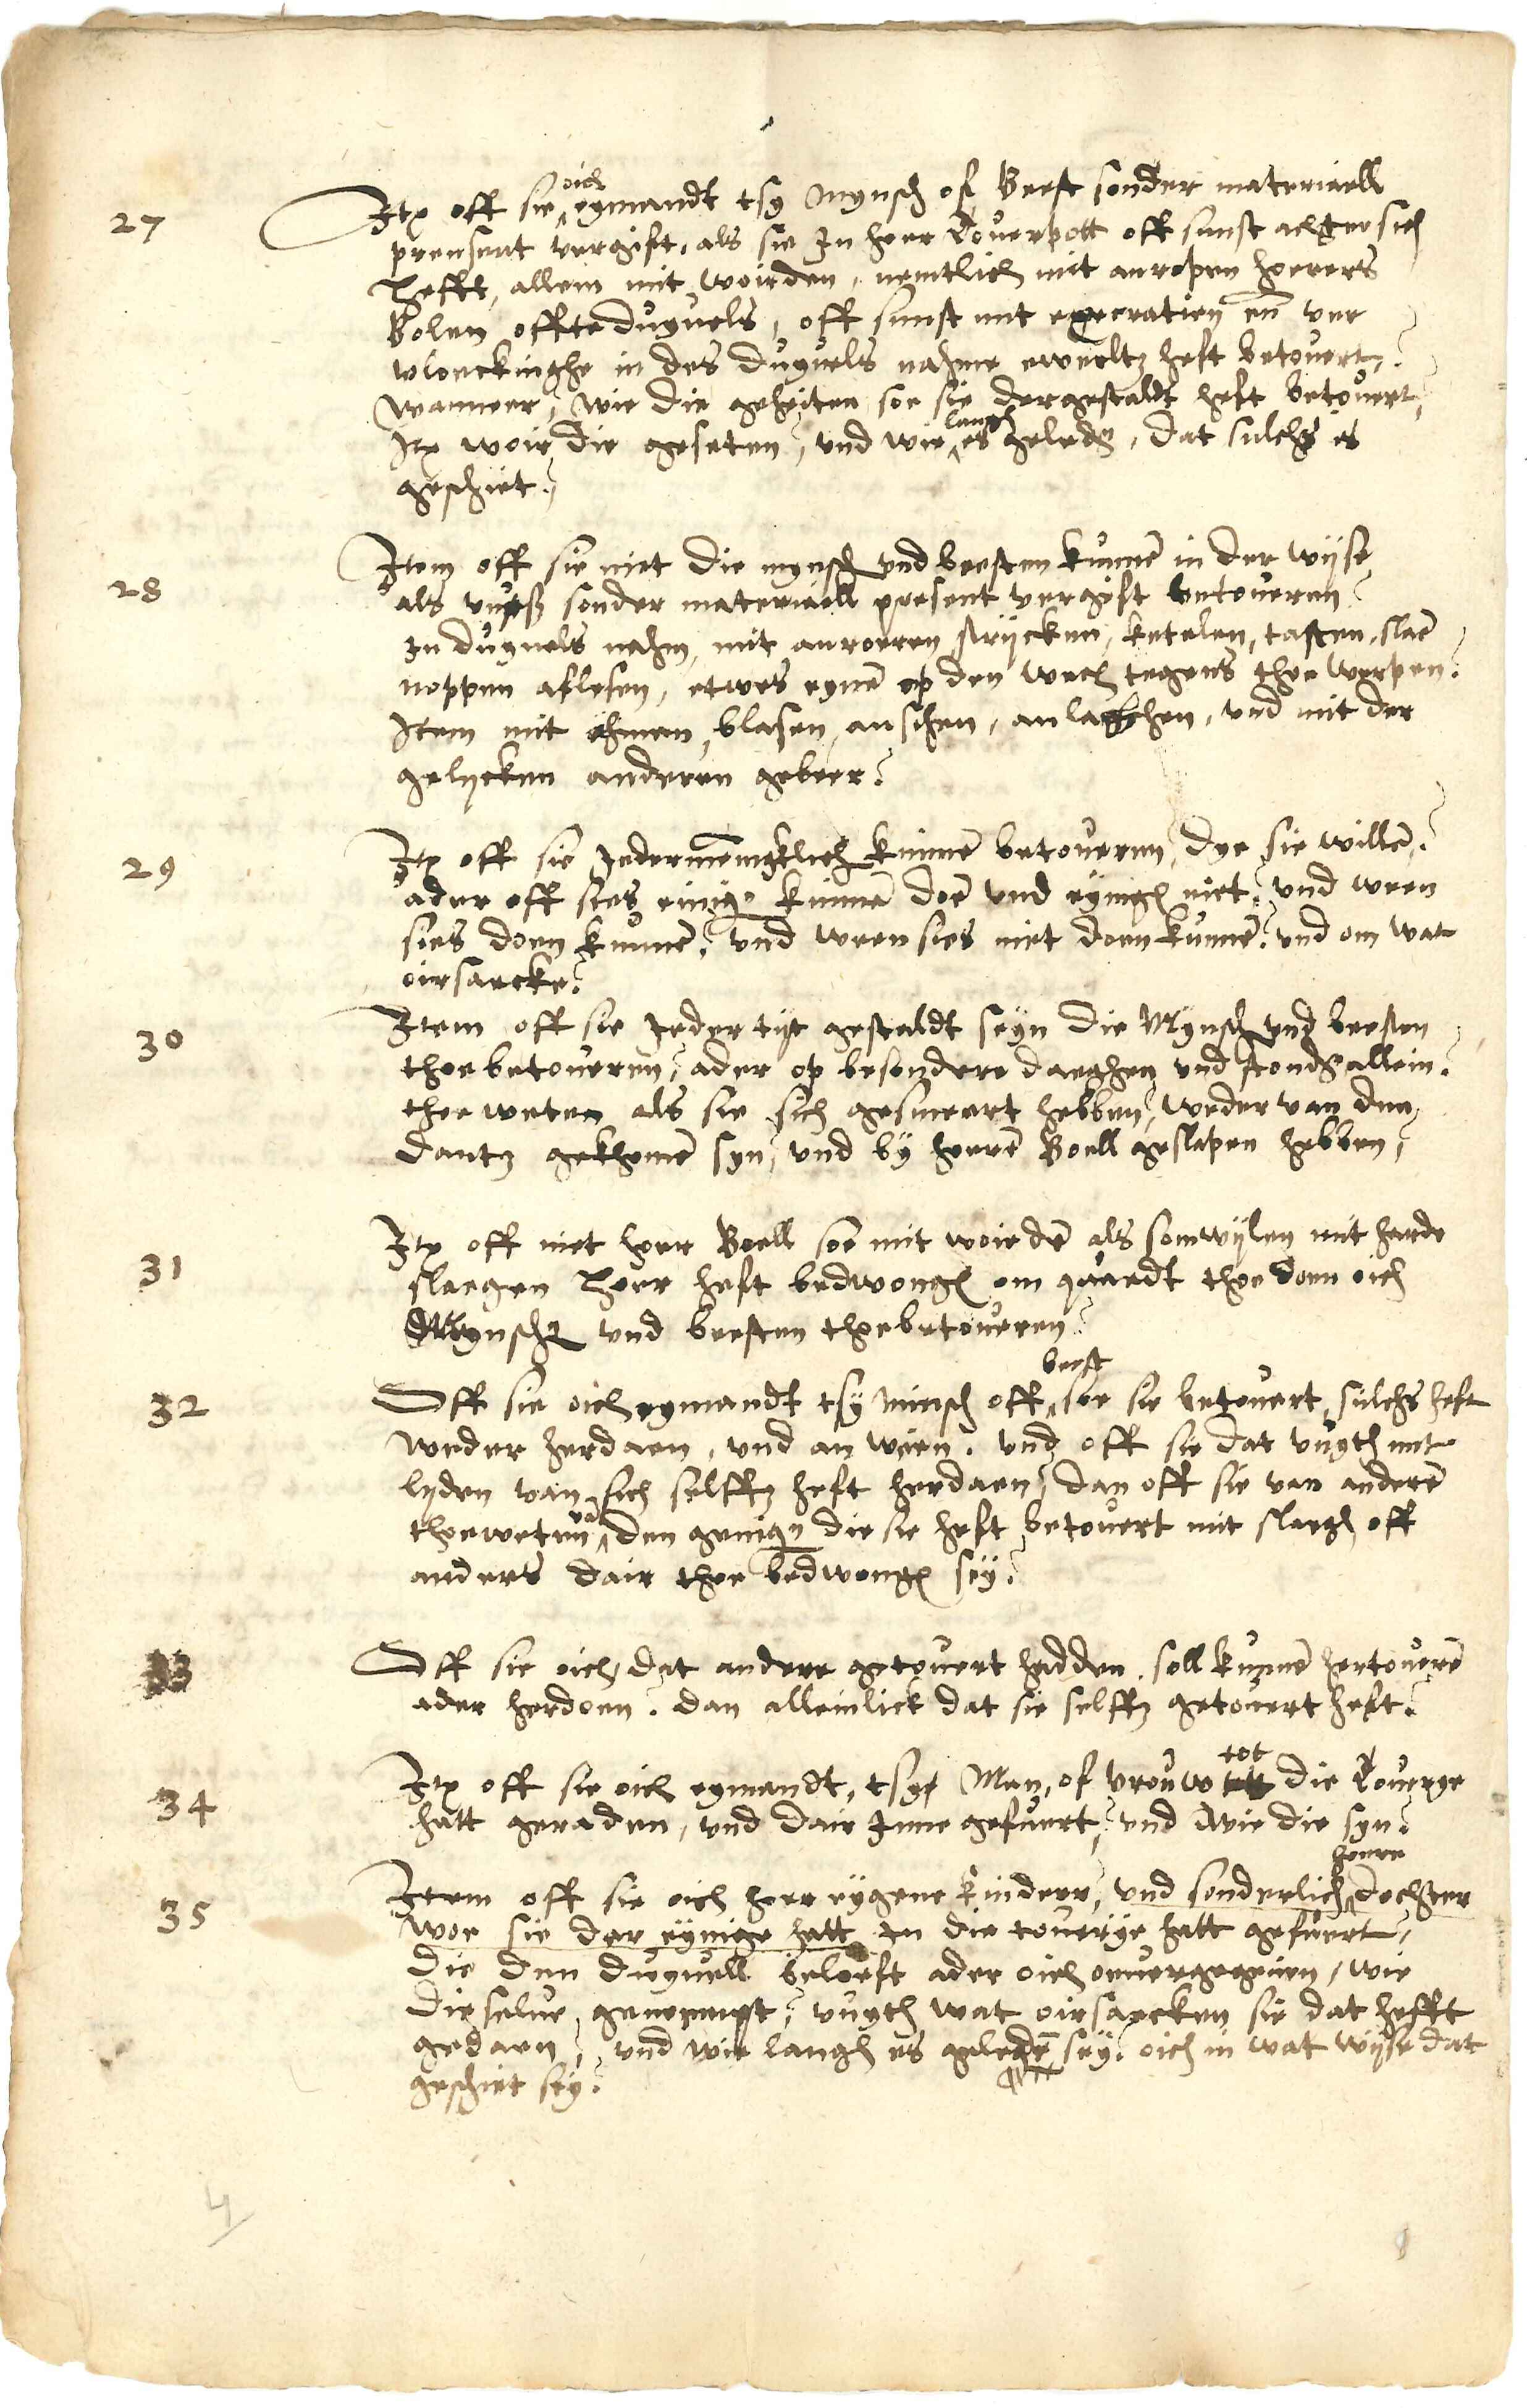 27 Itē off sie oich eymandt tsy Mynsch of Beest sonder materiaell
prensent vergift, als sie in hoer Toverpott off sunst achter sich
hefft, allein mit woirden, nemtlich mit anropen hoerers
Bolen offte duyuels, off sunst mit execratien en̄ ver
vloeckinghe in des duyuels nahme eweltz heft betouert?
Wanneer, wie die geheiten soe sie dergestaldt heft betouert,
Itē woir die geseten, und wie langh es geledē, dat sulchs is
geschiet?
28 Item off sie niet die mynsch und beesten kunnē in der wyse
als vurß sonder materiaell present vergift betoueren
in duyuels nahm, mit anroeren strycken, ketelen, tasten, slaē
noppen aflesen, etwes eynē op den wech tegens thoe werpen?
Item mit ehmen, blasen, ansehen, anlachchen, und mit der
gelycken anderen gebeer?
29 Itē off sie Jedermenigklich kunnē betoueren, dye sie willē?
ader off sies einige kunnē doē und eynigē niet? und ween
sies doen kunnē? und ween sies niet doen kunnē? und om wat
oirsaecke?
30 Item off sie Jeder tyt gestaldt seyn die Mynsch und beesten
thoe betoueren, ader op besondere daeghen und stondē allein?
thoe weten als sie sich gesmeert hebben, weder van den
dantz gekhomē syn, und by hoerē Boell geslapen hebben?
31 Itē off niet hoer Boell soe mit woirdē als somwylen mit harde
slaegen hoer heft bedwongē om quaedt thoe doen oich
Mynschē und beesten thoe betoueren?
32 Off sie oich eymandt tsy minsch off beest soe sie betouert, sulchs heft
weder herdaen, und an wien? und off sie dat vuyth mit
lyden van sich selffz heft herdaen, dan off sie van anderē
thoe weten va den genigē die sie heft betouert mit slaegē off
anders dair thoe bedwongē sey?
33 Off sie oich, dat andere getouert hadden, soll kunnē hertouerē
ader herdoen? dan alleinlick dat sie selffz getouert heft?
34 Itē off sie oich eymandt, tsy Man, of vrouw tot die Touerye
hatt geraden, und dair Inne gefuert, und wie die syn?
35 Item off sie oich hoer eygene kinder, und sonderlich hoere dochter
woe sie der eynige hatt in die touerye hatt gefuert,
die den duyuell beloeft ader oich ouergegeuen, wie
dieselue genoempt, vuyth wat oirsaecken sie dat hefft
gedaen, und wie langh es geledē sey? oich in wat wyse dat
geschiet sey?
4